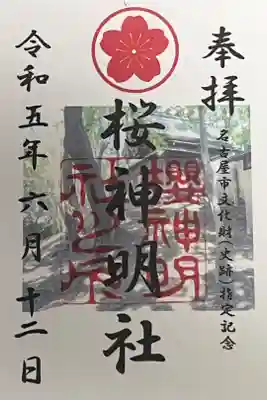 奉拝
名古屋市文化財(史跡)指定記念
桜神明社
櫻神明
社之印
令和五年六月十二日